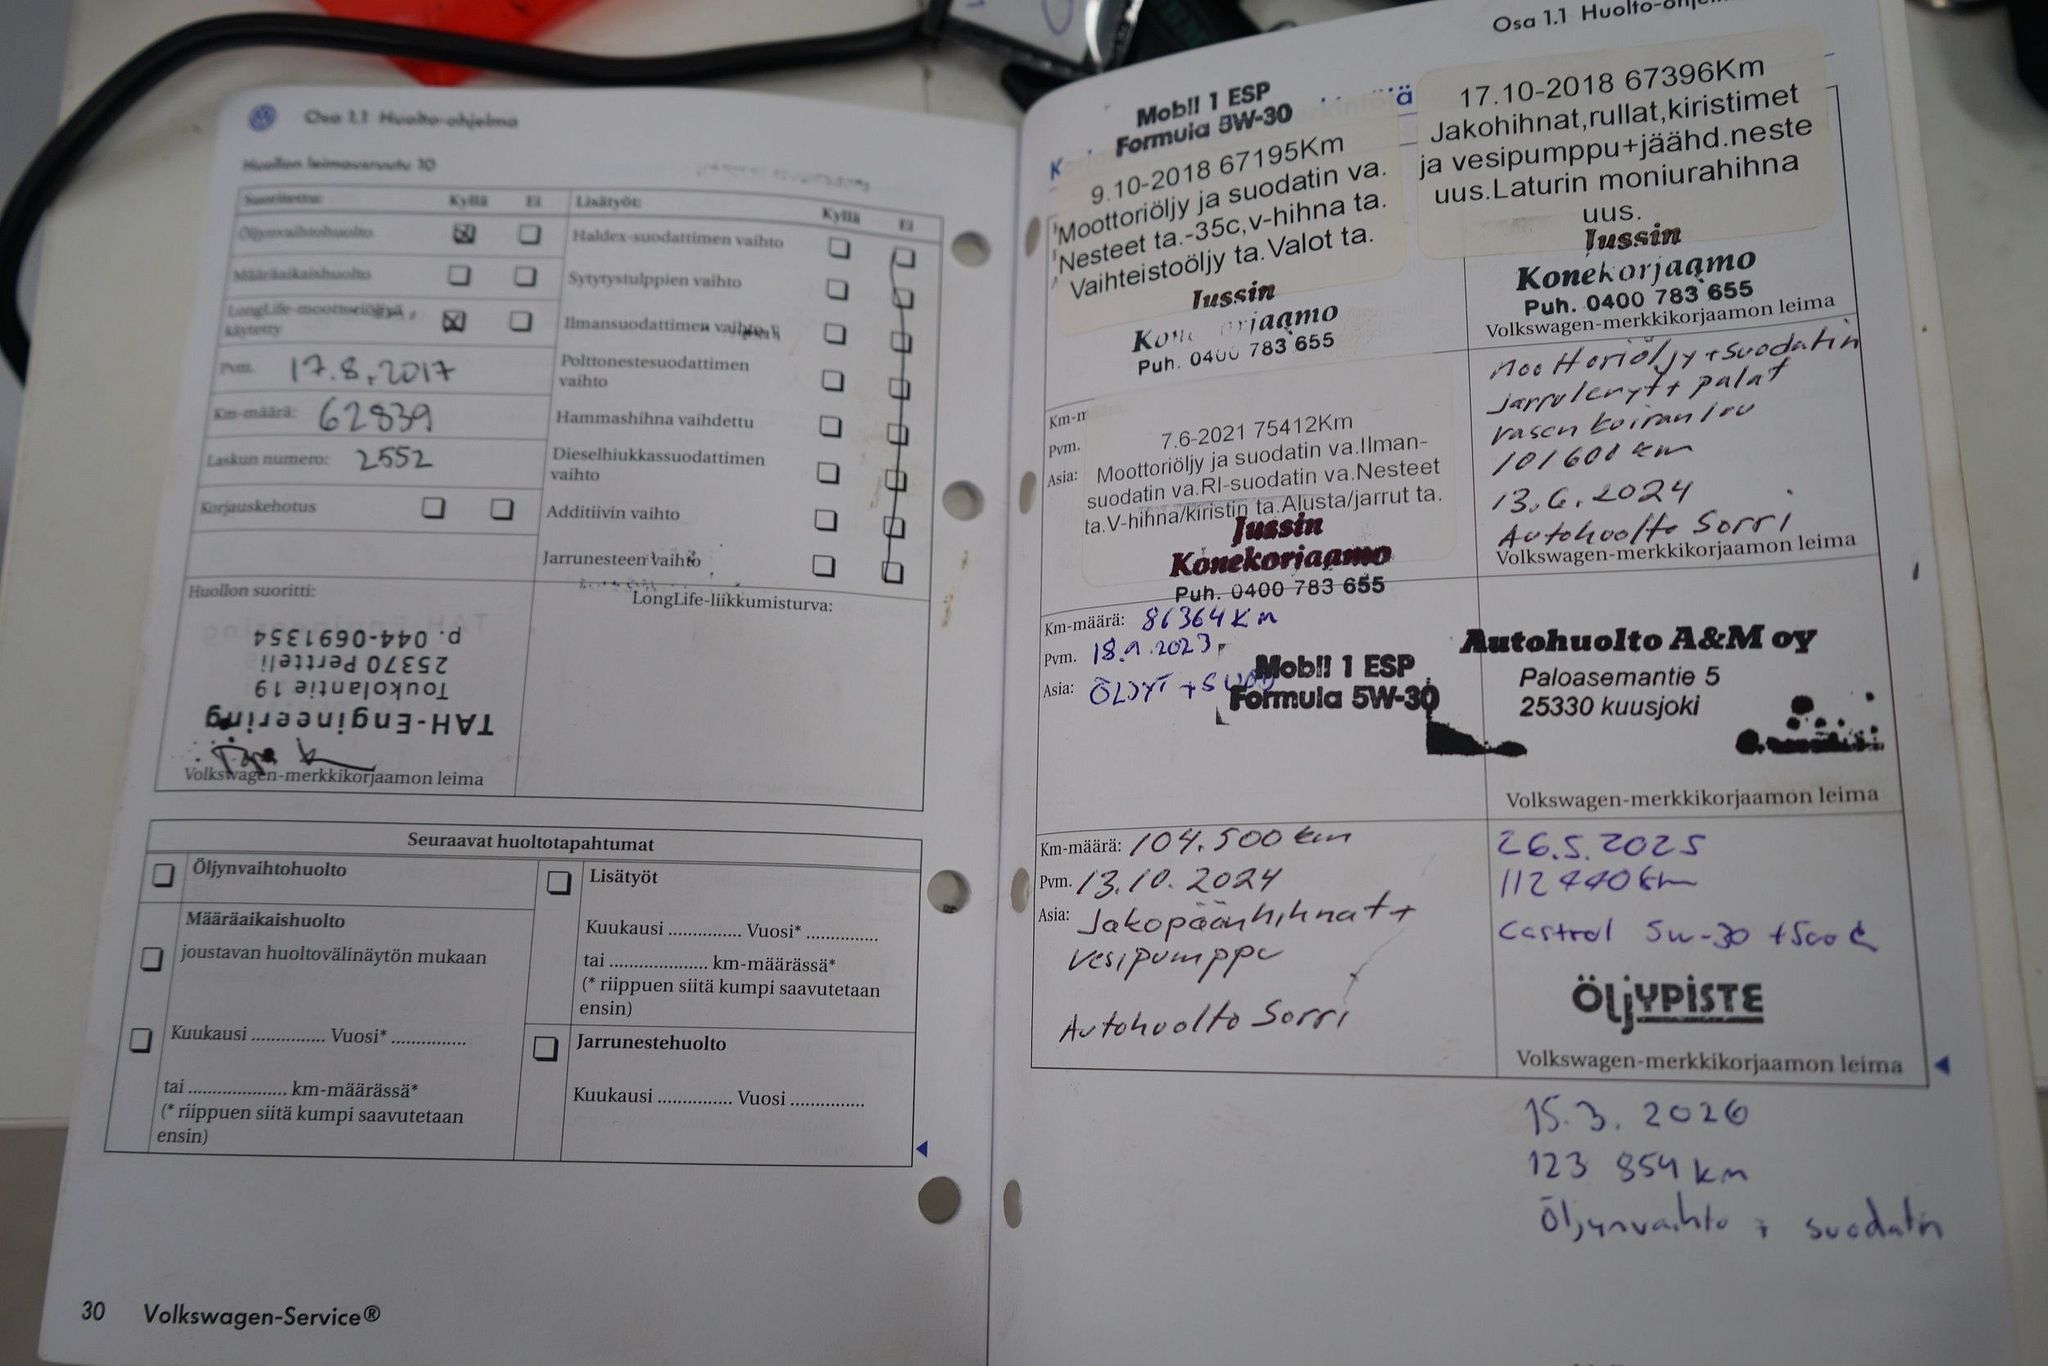 Osa 1.1 Huolto-ohjelma
Huollon leimavaruutu 10
Suoritettu: Kyllä Ei
Öljynvaihtohuolto
Määräaikaishuolto
LongLife-moottoriöljyä
käytetty
Pvm. 17.8.2017
Km-määrä: 62839
Laskun numero: 2552
Korjauskehotus
Huollon suoritti:
p. 044-0691354
25370 Pertteli
Toukolantie 19
TAH-Engineering
Volkswagen-merkkikorjaamon leima
Lisätyöt: Kyllä Ei
Haldex-suodattimen vaihto
Sytytystulppien vaihto
Ilmansuodattimen vaihto
Polttonestesuodattimen
vaihto
Hammashihna vaihdettu
Dieselhiukkassuodattimen
vaihto
Additiivin vaihto
Jarrunesteen vaihto
LongLife-liikkumisturva:
Seuraavat huoltotapahtumat
Öljynvaihtohuolto
Määräaikaishuolto
joustavan huoltovälinäytön mukaan
Kuukausi ............... Vuosi* ...............
tai .................... km-määrässä*
(* riippuen siitä kumpi saavutetaan
ensin)
Lisätyöt
Kuukausi ............... Vuosi* ...............
tai .................... km-määrässä*
(* riippuen siitä kumpi saavutetaan
ensin)
Jarrunestehuolto
Kuukausi ............... Vuosi ...............
30 Volkswagen-Service®
Osa 1.1
Mobil 1 ESP
Formula 5W-30
9.10-2018 67195Km
Moottoriöljy ja suodatin va.
Nesteet ta.-35c,v-hihna ta.
Vaihteistoöljy ta.Valot ta.
Jussin
Konekorjaamo
Puh. 0400 783 655
17.10-2018 67396Km
Jakohihnat,rullat,kiristimet
ja vesipumppu+jäähd.neste
uus.Laturin moniurahihna
uus.
Jussin
Konekorjaamo
Puh. 0400 783 655
Volkswagen-merkkikorjaamon leima
Km-m
Pvm.
Asia:
7.6-2021 75412Km
Moottoriöljy ja suodatin va.Ilman-
suodatin va.RI-suodatin va.Nesteet
ta.V-hihna/kiristin ta.Alusta/jarrut ta.
Jussin
Konekorjaamo
Puh. 0400 783 655
Moottoriöljy + suodatin
jarrulevyt + palat
vasen koiranluu
101600 km
13.6.2024
Autohuolto Sorri
Volkswagen-merkkikorjaamon leima
Km-määrä: 86364 Km
Pvm. 18.9.2023
Asia: ÖLJYT + SUOD
Mobil 1 ESP
Formula 5W-30
Autohuolto A&M oy
Paloasemantie 5
25330 kuusjoki
Volkswagen-merkkikorjaamon leima
Km-määrä: 104.500 km
Pvm. 13.10.2024
Asia: Jakopäänhihnat +
vesipumppu
Autohuolto Sorri
26.5.2025
112440 km
Castrol 5w-30 + Suod
ÖLjYPISTE
Volkswagen-merkkikorjaamon leima
15.3.2026
123 854 km
Öljynvaihto + suodatin